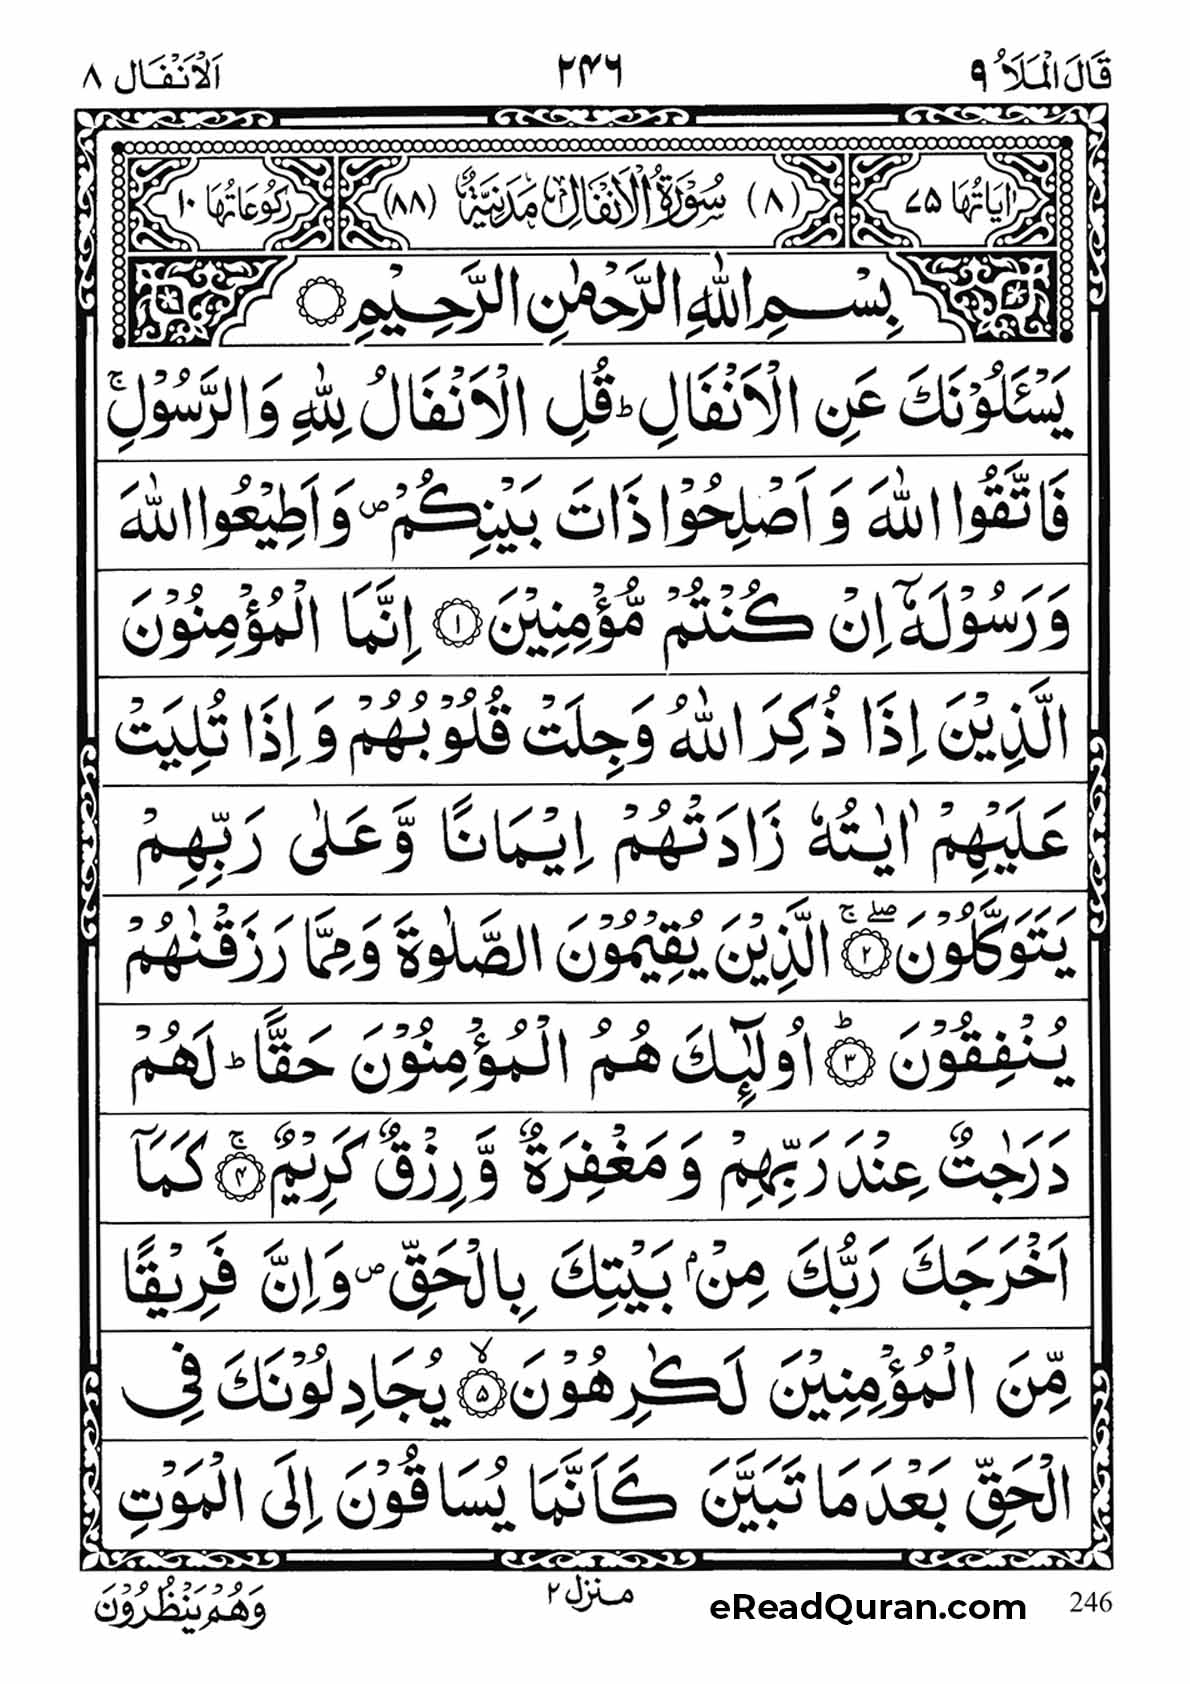 قَالَ الْمَلَاُ ۹
۲۴۶
اَلْاَنْفَال ۸
اٰيَاتُهَا ۷۵
(۸) سُوْرَةُ الْاَنْفَالِ مَدَنِيَّةٌ (۸۸)
رُكُوْعَاتُهَا ۱۰
بِسْمِ اللّٰهِ الرَّحْمٰنِ الرَّحِيْمِ ۝
يَسْـَٔلُوْنَكَ عَنِ الْاَنْفَالِ ؕ قُلِ الْاَنْفَالُ لِلّٰهِ وَالرَّسُوْلِ ۚ
فَاتَّقُوا اللّٰهَ وَاَصْلِحُوْا ذَاتَ بَيْنِكُمْ ۪ وَاَطِيْعُوا اللّٰهَ
وَرَسُوْلَهٗۤ اِنْ كُنْتُمْ مُّؤْمِنِيْنَ ﴿۱﴾ اِنَّمَا الْمُؤْمِنُوْنَ
الَّذِيْنَ اِذَا ذُكِرَ اللّٰهُ وَجِلَتْ قُلُوْبُهُمْ وَاِذَا تُلِيَتْ
عَلَيْهِمْ اٰيٰتُهٗ زَادَتْهُمْ اِيْمَانًا وَّعَلٰى رَبِّهِمْ
يَتَوَكَّلُوْنَ ۖۚ ﴿۲﴾ الَّذِيْنَ يُقِيْمُوْنَ الصَّلٰوةَ وَمِمَّا رَزَقْنٰهُمْ
يُنْفِقُوْنَ ؕ ﴿۳﴾ اُولٰٓئِكَ هُمُ الْمُؤْمِنُوْنَ حَقًّا ؕ لَهُمْ
دَرَجٰتٌ عِنْدَ رَبِّهِمْ وَمَغْفِرَةٌ وَّرِزْقٌ كَرِيْمٌ ۚ ﴿۴﴾ كَمَاۤ
اَخْرَجَكَ رَبُّكَ مِنْۢ بَيْتِكَ بِالْحَقِّ ۪ وَاِنَّ فَرِيْقًا
مِّنَ الْمُؤْمِنِيْنَ لَكٰرِهُوْنَ ۙ ﴿۵﴾ يُجَادِلُوْنَكَ فِى
الْحَقِّ بَعْدَ مَا تَبَيَّنَ كَاَنَّمَا يُسَاقُوْنَ اِلَى الْمَوْتِ
246
eReadQuran.com
منزل ۲
وَهُمْ يَنْظُرُوْنَ